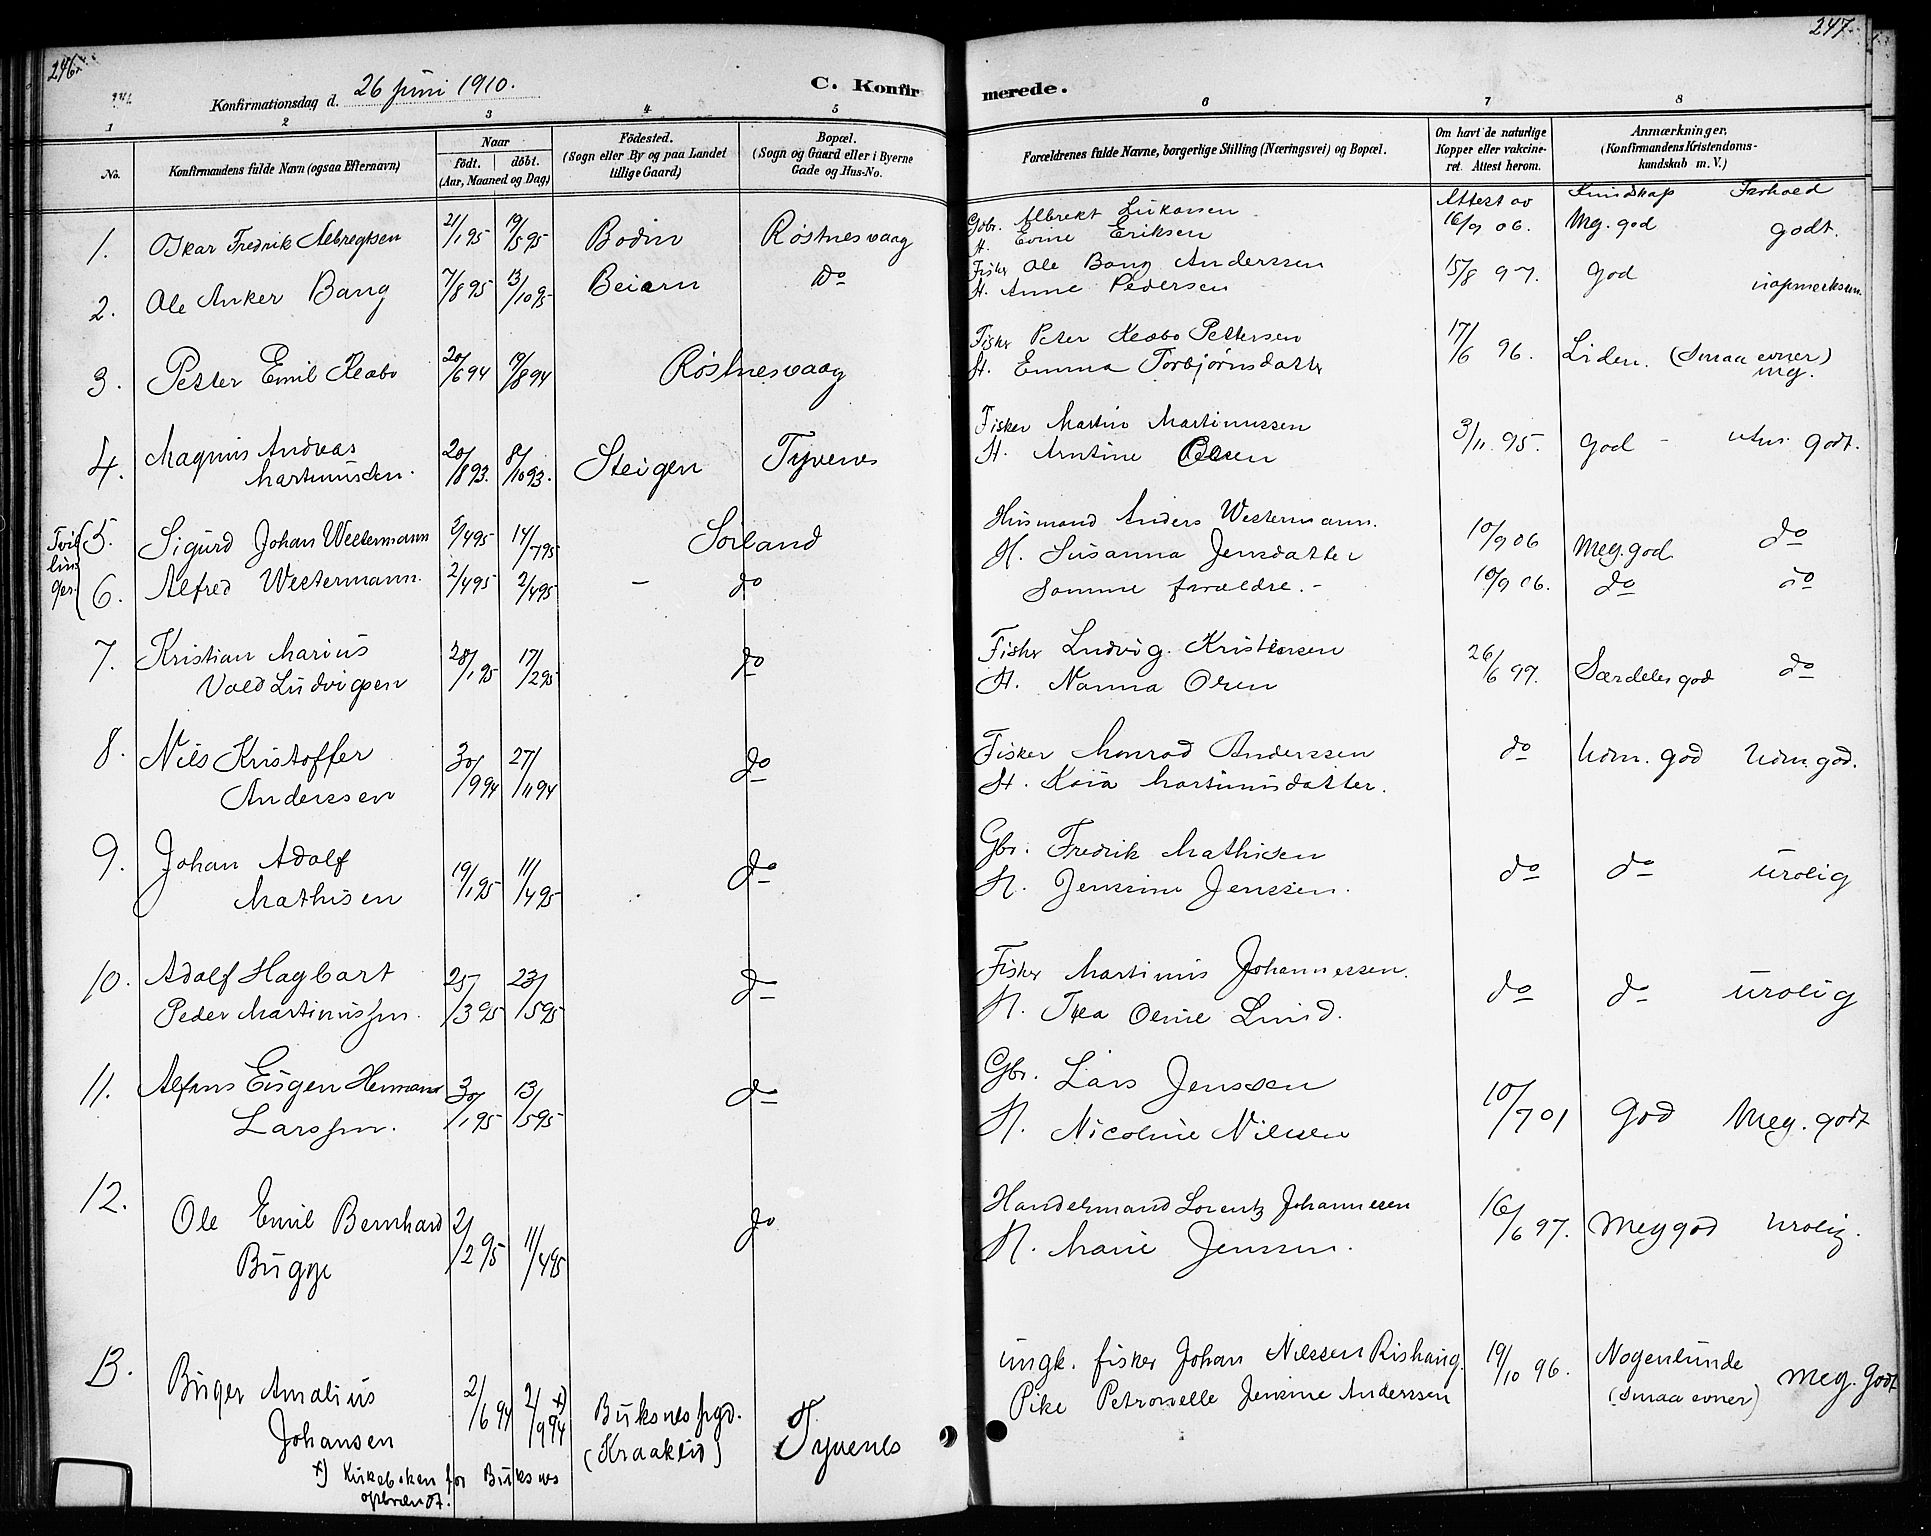 246.
247.
Konfirmationsdag d. 26 juni 1910.
C. Konfirmerede.
1 2 3 4 5 6 7 8
No.
Konfirmandens fulde Navn (ogsaa Efternavn)
Naar
födt. döbt.
(Aar, Maaned og Dag)
Födested.
(Sogn eller By og paa Landet
tillige Gaard)
Bopæl.
(Sogn og Gaard eller i Byerne
Gade og Hus-No.
Forældrenes fulde Navne, borgerlige Stilling (Næringsvei) og Bopæl.
Om havt de naturlige
Kopper eller vakcine-
ret. Attest herom.
Anmærkninger,
(Konfirmandens Kristendoms-
kundskab m. V.)
Attest av Kundskap Forhold
1. Oskar Fredrik Albregtsen 21/1 95 19/5 95 Bodin Røstnesvaag Gdbr. Albrekt Lukassen 16/9 06. Meg. god godt.
H. Evine Eriksen
2. Ole Anker Bang 7/8 95 13/10 95 Beiarn do Fisker Ole Bang Anderssen 15/8 97. god uopmerksom
H. Anne Pedersen
3. Petter Emil Kleabo 20/6 94 19/8 94 Røstnesvaag Fisker Peter Kleabo Pettersen 17/6 96. Liden. (Smaa evner) mg.
H. Emma Torbjørnsdatter
4. Magnus Andreas
Martinussen. 20/8 93. 8/10 93. Steigen Tyvenes Fisker Martin Martinussen 3/11 95. god - godt.
H. Arntine Olsen
Tvil
lin
ger.
5. Sigurd Johan Westermann 3/4 95 14/7 95 Sørland Husmand Anders Westermann. 10/9 06 Meg. god do
H. Susanna Jensdatter
6. Alfred Westermann. 2/4 95 2/4 95 - do Samme forældre. - 10/9 06. do do
7. Kristian Marius
Vold Ludvigsen 28/1 95 17/2 95 do Fisker Ludvig Kristensen 26/6 97. Særdeles god do
H. Nanna Olsen
8. Nils Kristoffer
Anderssen 30/9 94 27/11 94 do Fisker Monrad Anderssen do Udm. god Udm. god.
H. Kaia Martinusdatter.
9. Johan Adolf
Mathisen 19/1 95 11/4 95 do Gbr. Fredrik Mathisen do do urolig
H. Jenssine Jenssen.
10. Adolf Hagbart
Peder Martinussen. 25/3 95 23/5 95 do Fisker Martinus Johannessen. do do urolig
H. Thea Oline Lund.
11. Alfons Eugen Hermann
Larssen. 30/1 95 13/5 95 do Gbr. Lars Jenssen 10/7 01 God Meg. godt
H. Nicoline Nilssen
12. Ole Emil Bernhard
Bugge 2/2 95 11/4 95 do Handelsmand Lorentz Johannesen 16/6 97. Meg god urolig.
H. Marie Jenssen.
13. Birger Amalius
Johansen 2/6 94 2/9 94 x) Buksnes prgd.
(Kraaklid) Tyvenes ungk. fisker Johan Nilssen Rishaug. 19/10 96. Nogenlunde
(Smaa evner) meg. godt
Pike Petronelle Jensine Anderssen
x) Kirkeboken for Buksnes
opbrændt.